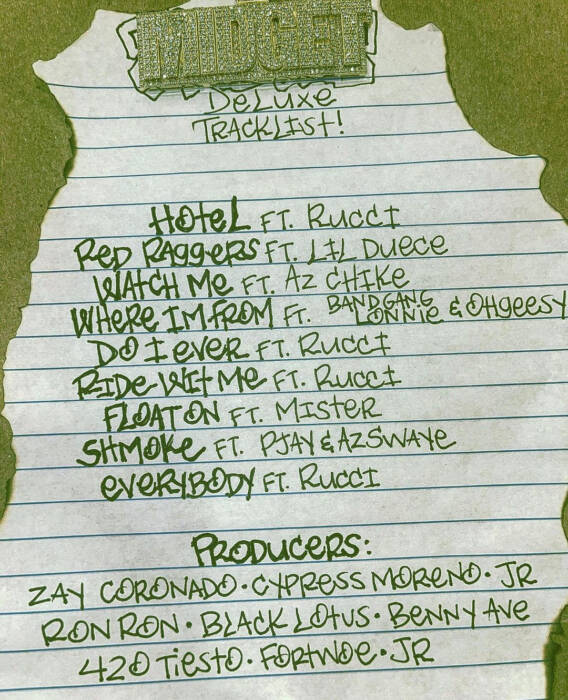 MIDGET
DELUXE
TRACKLIST!
HOTEL FT. RUCCI
RED RAGGERS FT. LIL DUECE
WATCH ME FT. AZ CHIKE
WHERE IM FROM FT. BANDGANG LONNIE & OHGEESY
DO I EVER FT. RUCCI
RIDE WIT ME FT. RUCCI
FLOAT ON FT. MISTER
SHMOKE FT. PJAY & AZSWAYE
EVERYBODY FT. RUCCI
PRODUCERS:
ZAY CORONADO • CYPRESS MORENO • JR
RON RON • BLACK LOTUS • BENNY AVE
420 TIESTO • FORTNOE • JR